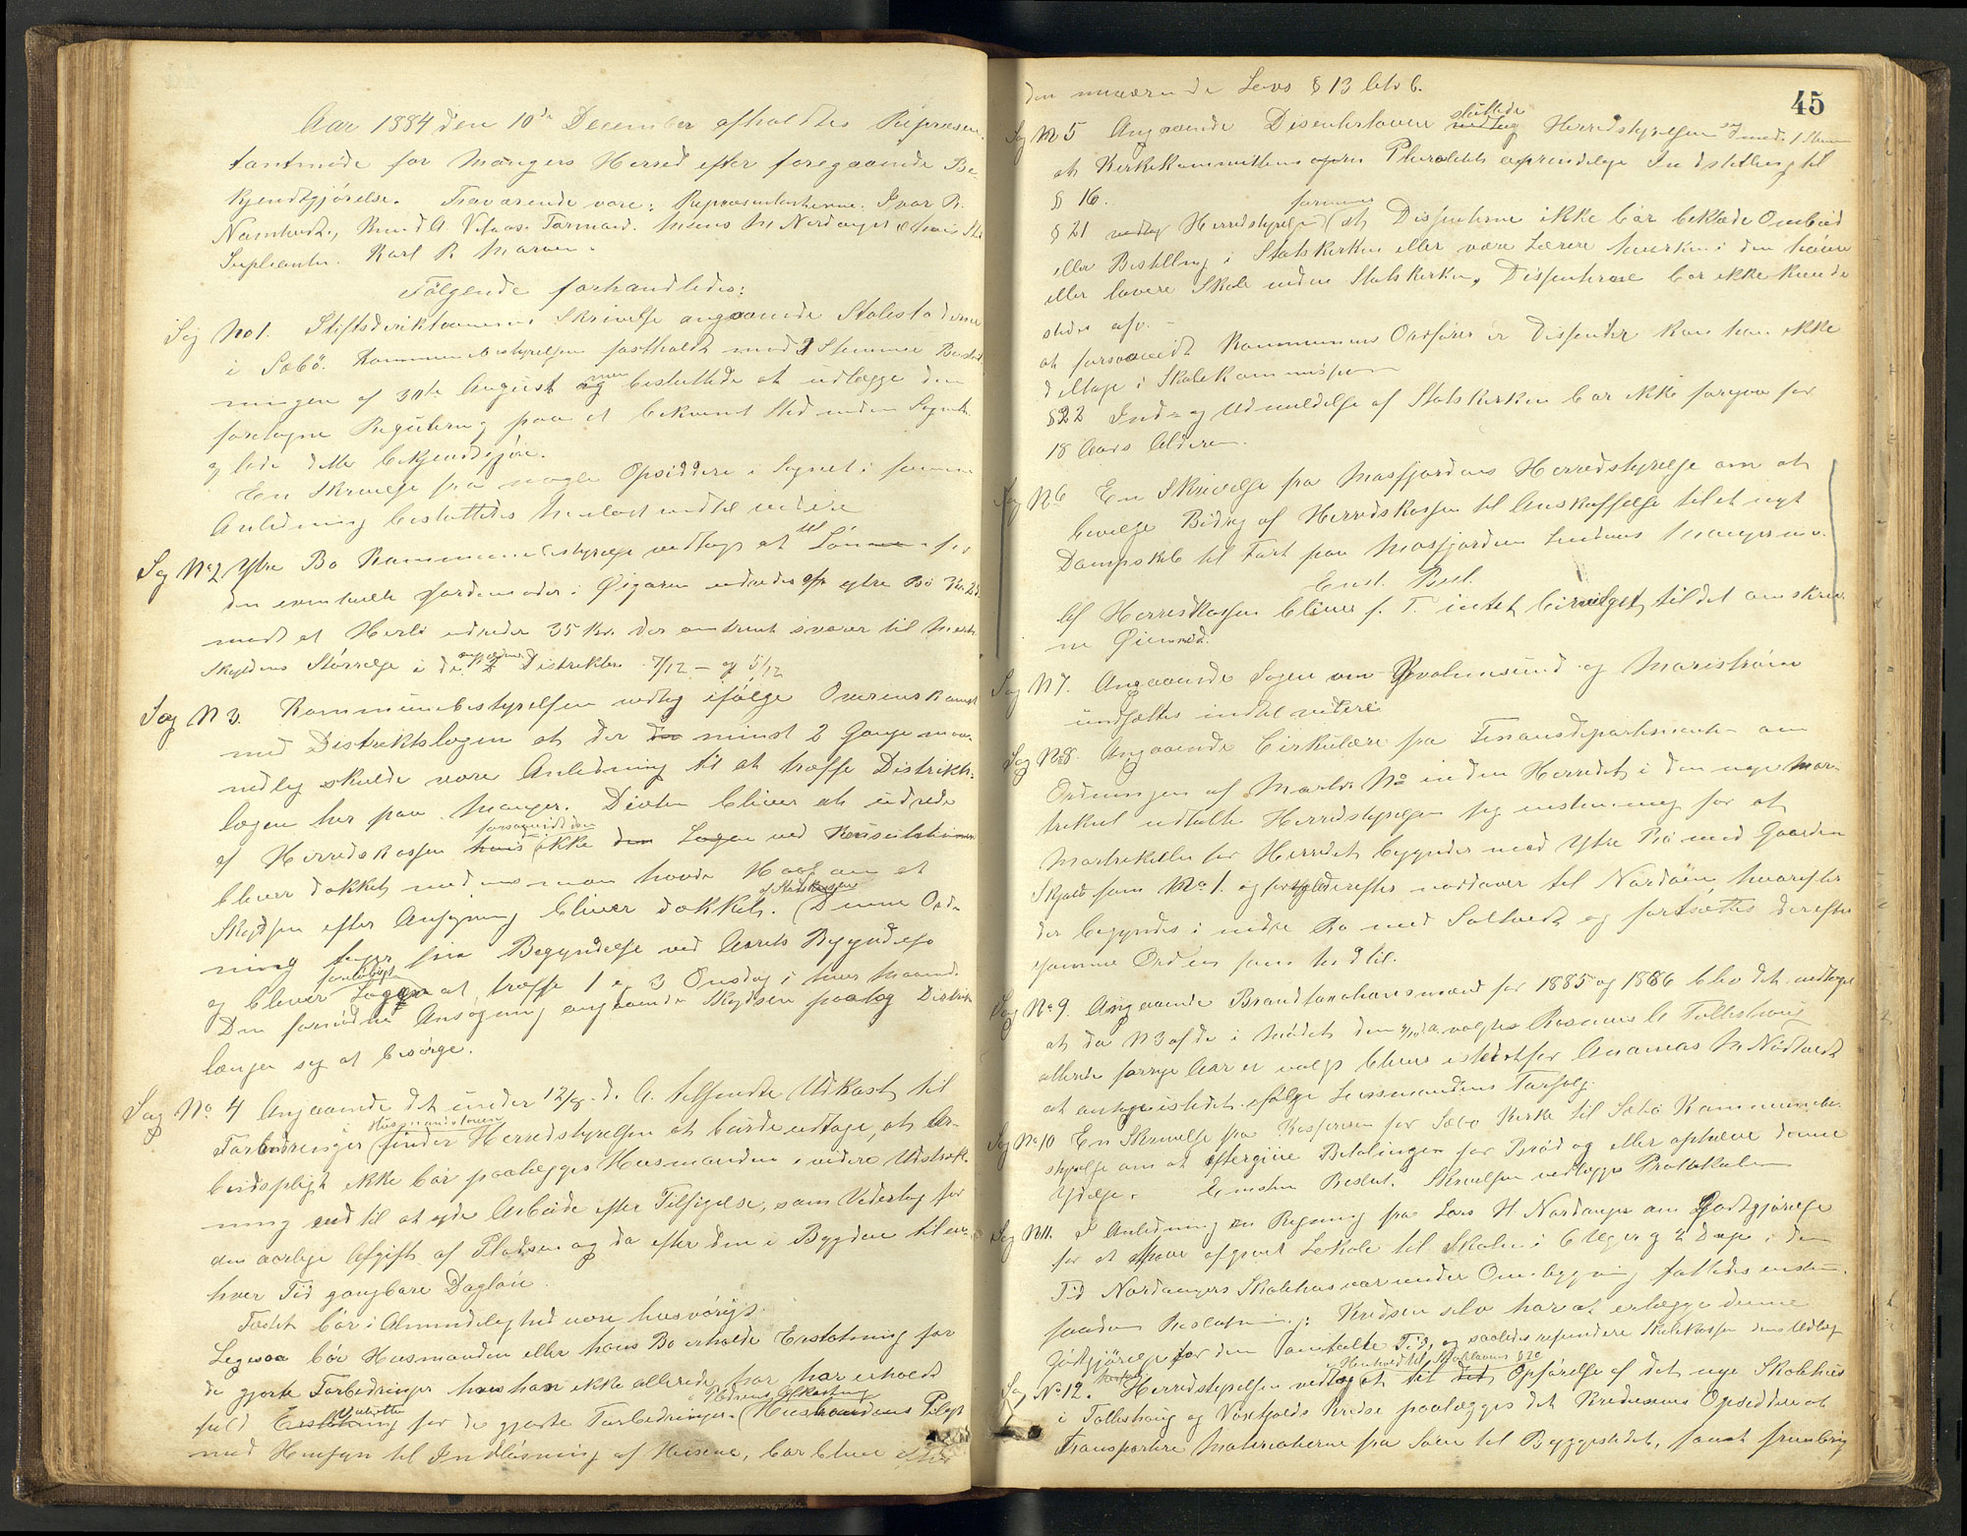 Aar 1884 den 10de December afholdtes Repræsen-
tantmøde for Mangers Herred efter foregaaende Be-
kjendtgjørelse. Fraværende vare: Repræsentanterne: Ivar R.
Namtvedt, Knud A. Formand. Mons M Nordanger
Supleanter. Karl R. Maren.
Følgende forhandledes:
Sag No 1. Stiftsdirektionens Skrivelse angaaende Stolestaderne
i Sæbø. Kommunebestyrelsen fastholdt med 9 Stemmer Beslut-
ningen af 30te August men besluttede at udlægge den
foretagne Regulering paa et bekvemt Sted inden Sognet
og lade dette bekjendtgjøre.
En Skrivelse fra nogle Opsiddere i Sognet i samme
Anledning besluttedes henlagt indtil videre
Sag No 2 Ytre Bø Kommunebestyrelse vedtog at til Lønnen for
den eventuelle Jordemoder i Øigaren udredes af ytre Bø
mod at Herlø udreder 35 Kr. der omtrent svarer til Matr.
Skyldens Størrelse i de Distrikter 7/12 - og 5/12
Sag N 3. Kommunebestyrelsen vedtog ifølge Overenskomst
med Distriktslægen at der minst 2 Gange maa-
nedlig skulde være Anledning til at træffe Distrikts-
lægen her paa Manger. Diæten bliver at udrede
af Herredskassen forsaavidt den ikke ved Konsultationer
bliver dækket medens man havde Haab om at
Skydsen efter Ansøgning bliver dækket af Statskassen. (Denne Ord-
ning tager sin Begyndelse ved Aarets Begyndelse
og bliver foreløbigt Lægen at træffe 1 og 3 Onsdag i hver Maaned.
Den fornødne Ansøgning angaaende Skydsen paatog Distrikts-
lægen sig at besørge.
Sag No 4 Angaaende det under 12/8 d. A. tilsendte Udkast til
Forbedringer i Husmandsloven finder Herredstyrelsen at burde udtage, at Ar-
beidspligt ikke bør paalægges Husmanden i videre Udstræk-
ning end til at yde Arbeide efter Tilsigelse, som Vederlag for
den aarlige Afgift af Pladsen og da efter den i Bygden til en-
hver Tid gangbare Dagløn.
Fæstet bør i Almindelighed være livsvarigt.
Ligesaa bør Husmanden eller hans Bo erholde Erstatning for
de gjorte Forbedringer hvis han ikke allerede har erholdt
fuld Erstatning for de gjorte Forbedringer. (Husmandens Pligt
med Hensyn til Indløsning af Husene, bør blive efter
45
den nuværende Lovs § 13 litr b.
Sag N 5 Angaaende Disenterloven besluttede Herredstyrelsen
at Kirkekommitteens Pluralitets oprindelige Indstilling til
§ 16.
§ 21 vedtog Herredstyrelsen at Dissenterne ikke bør beklæde Ombud
eller Bestilling i Statskirken eller være Lærere hverken i den høiere
eller lavere Skole inden Statskirken, Dissenterne bør ikke kunde
stedes afv.
at forsaavidt Kommunens Ordfører er Dissenter kan han ikke
deltage i Skolekommisjonen
§ 22 Ind- og Udmeldelse af Statskirken bør ikke foregaa før
18 Aars Alderen.
Sag N 6 En Skrivelse fra Masfjordens Herredstyrelse om at
bevilge Bidrag af Herredskassen til Anskaffelse til et nyt
Dampskib til Fart paa Masfjorden Lindaas Manger m.v.
Enst. Besl.
Af Herredskassen bliver f. T. intet bevilget til det omskrev-
ne Øiemed.
Sag N 7. Angaaende Sagen om Kvalemsund og Maristrøm
undsættes indtil videre
Sag N 8. Angaaende Cirkulære fra Finansdepartementet om
Ordningen af Matr. No inden Herredet i den nye Mat-
trikul udtalte Herredstyrelsen sig enstemmig for at
Matrikelen for Herredet begynder med Ytre Bø med Gaarden
Skjold som No 1. og fortsætter derefter nordover til Nordøen, hvorefter
der begyndes i indre Bø med Soltvedt og fortsættes derefter
samme Orden som hidtil.
Sag No 9. Angaaende Brandtaxationsmænd for 1885 og 1886 blev det vedtaget
at da N 3 af de i Mødet den valgte Rasmus A Tolleshaug
allerede forrige Aar er valgt bliver istedetfor Ananias M Nordtvedt
at antage istedet ifølge Lensmandens Forslag.
Sag No 10 En Skrivelse fra Kassereren for Sæbø Kirke til Sæbø Kommunebe-
styrelse om at eftergive Betalingen for Brød og eller ophæve denne
Ydelse. Enstem. Beslut. Skrivelsen vedlægges Protokolen
Sag N 11. I Anledning en Regning fra Lars H. Nordanger om Godtgjørelse
for at have afgivet Lokale til Skolen i 6 Uger og 2 Dage i den
Tid Nordangers Skolehus var under Ombygning fattedes enstem.
saadan Beslutning: Kredsen selv har at erlægge denne
Godtgjørelse for den omtalte Tid, og saaledes refundere Skolekassen dens Udlæg
i Henhold til Skolelovens § 20
Sag No 12. Herredstyrelsen vedtog at til Opførelse af det nye Skolehus
i Tolleshaug og Voxefjolds Kreds paalægges det Kredsens Opsiddere at
transportere Materialerne fra Søen til Byggestedet, samt frembring